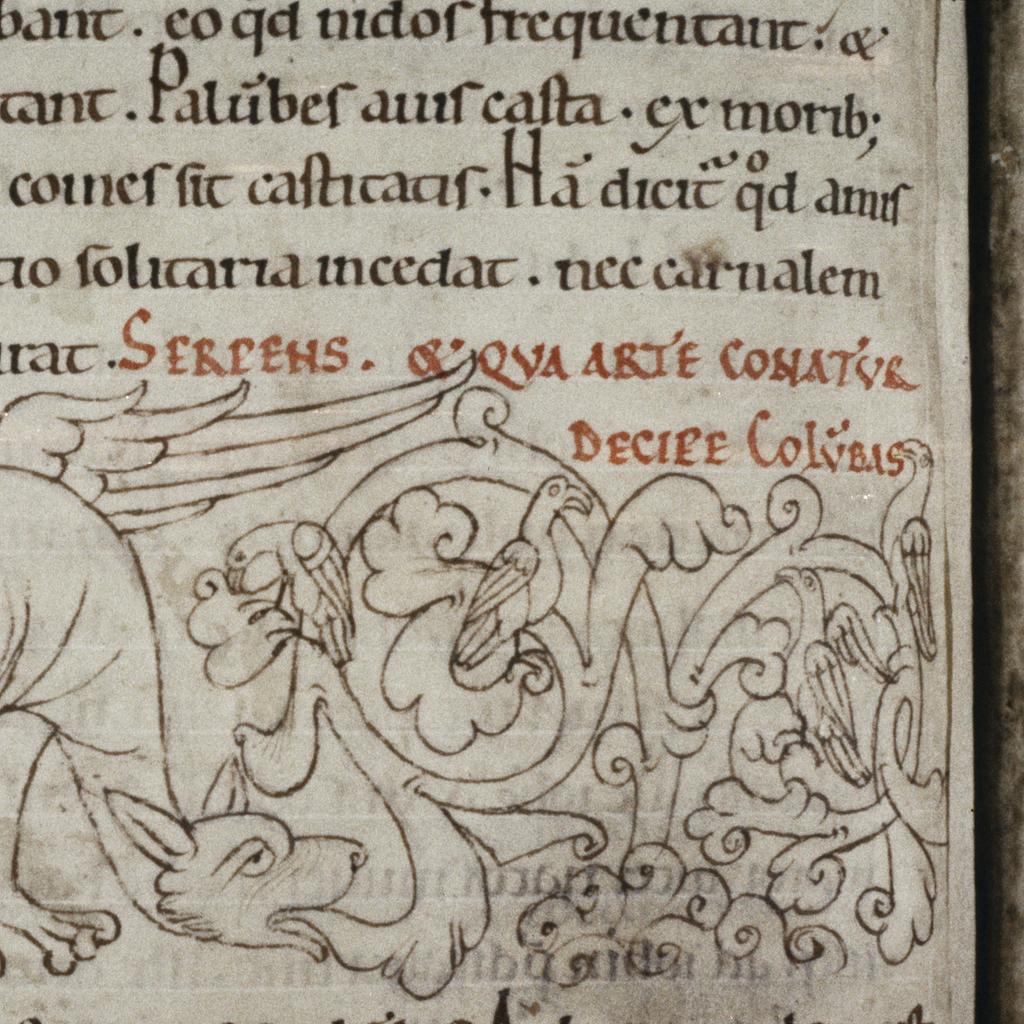 bant. eo qd nidos frequentant. &
tant. Palūbes auis casta. ex morib;
comes sit castitatis. Hā dicit̄ qͦd amis
tio solitaria incedat. nec carnalem
urat. SERPENS. & QVA ARTE CONATVR
DECIPE COLŪBAS